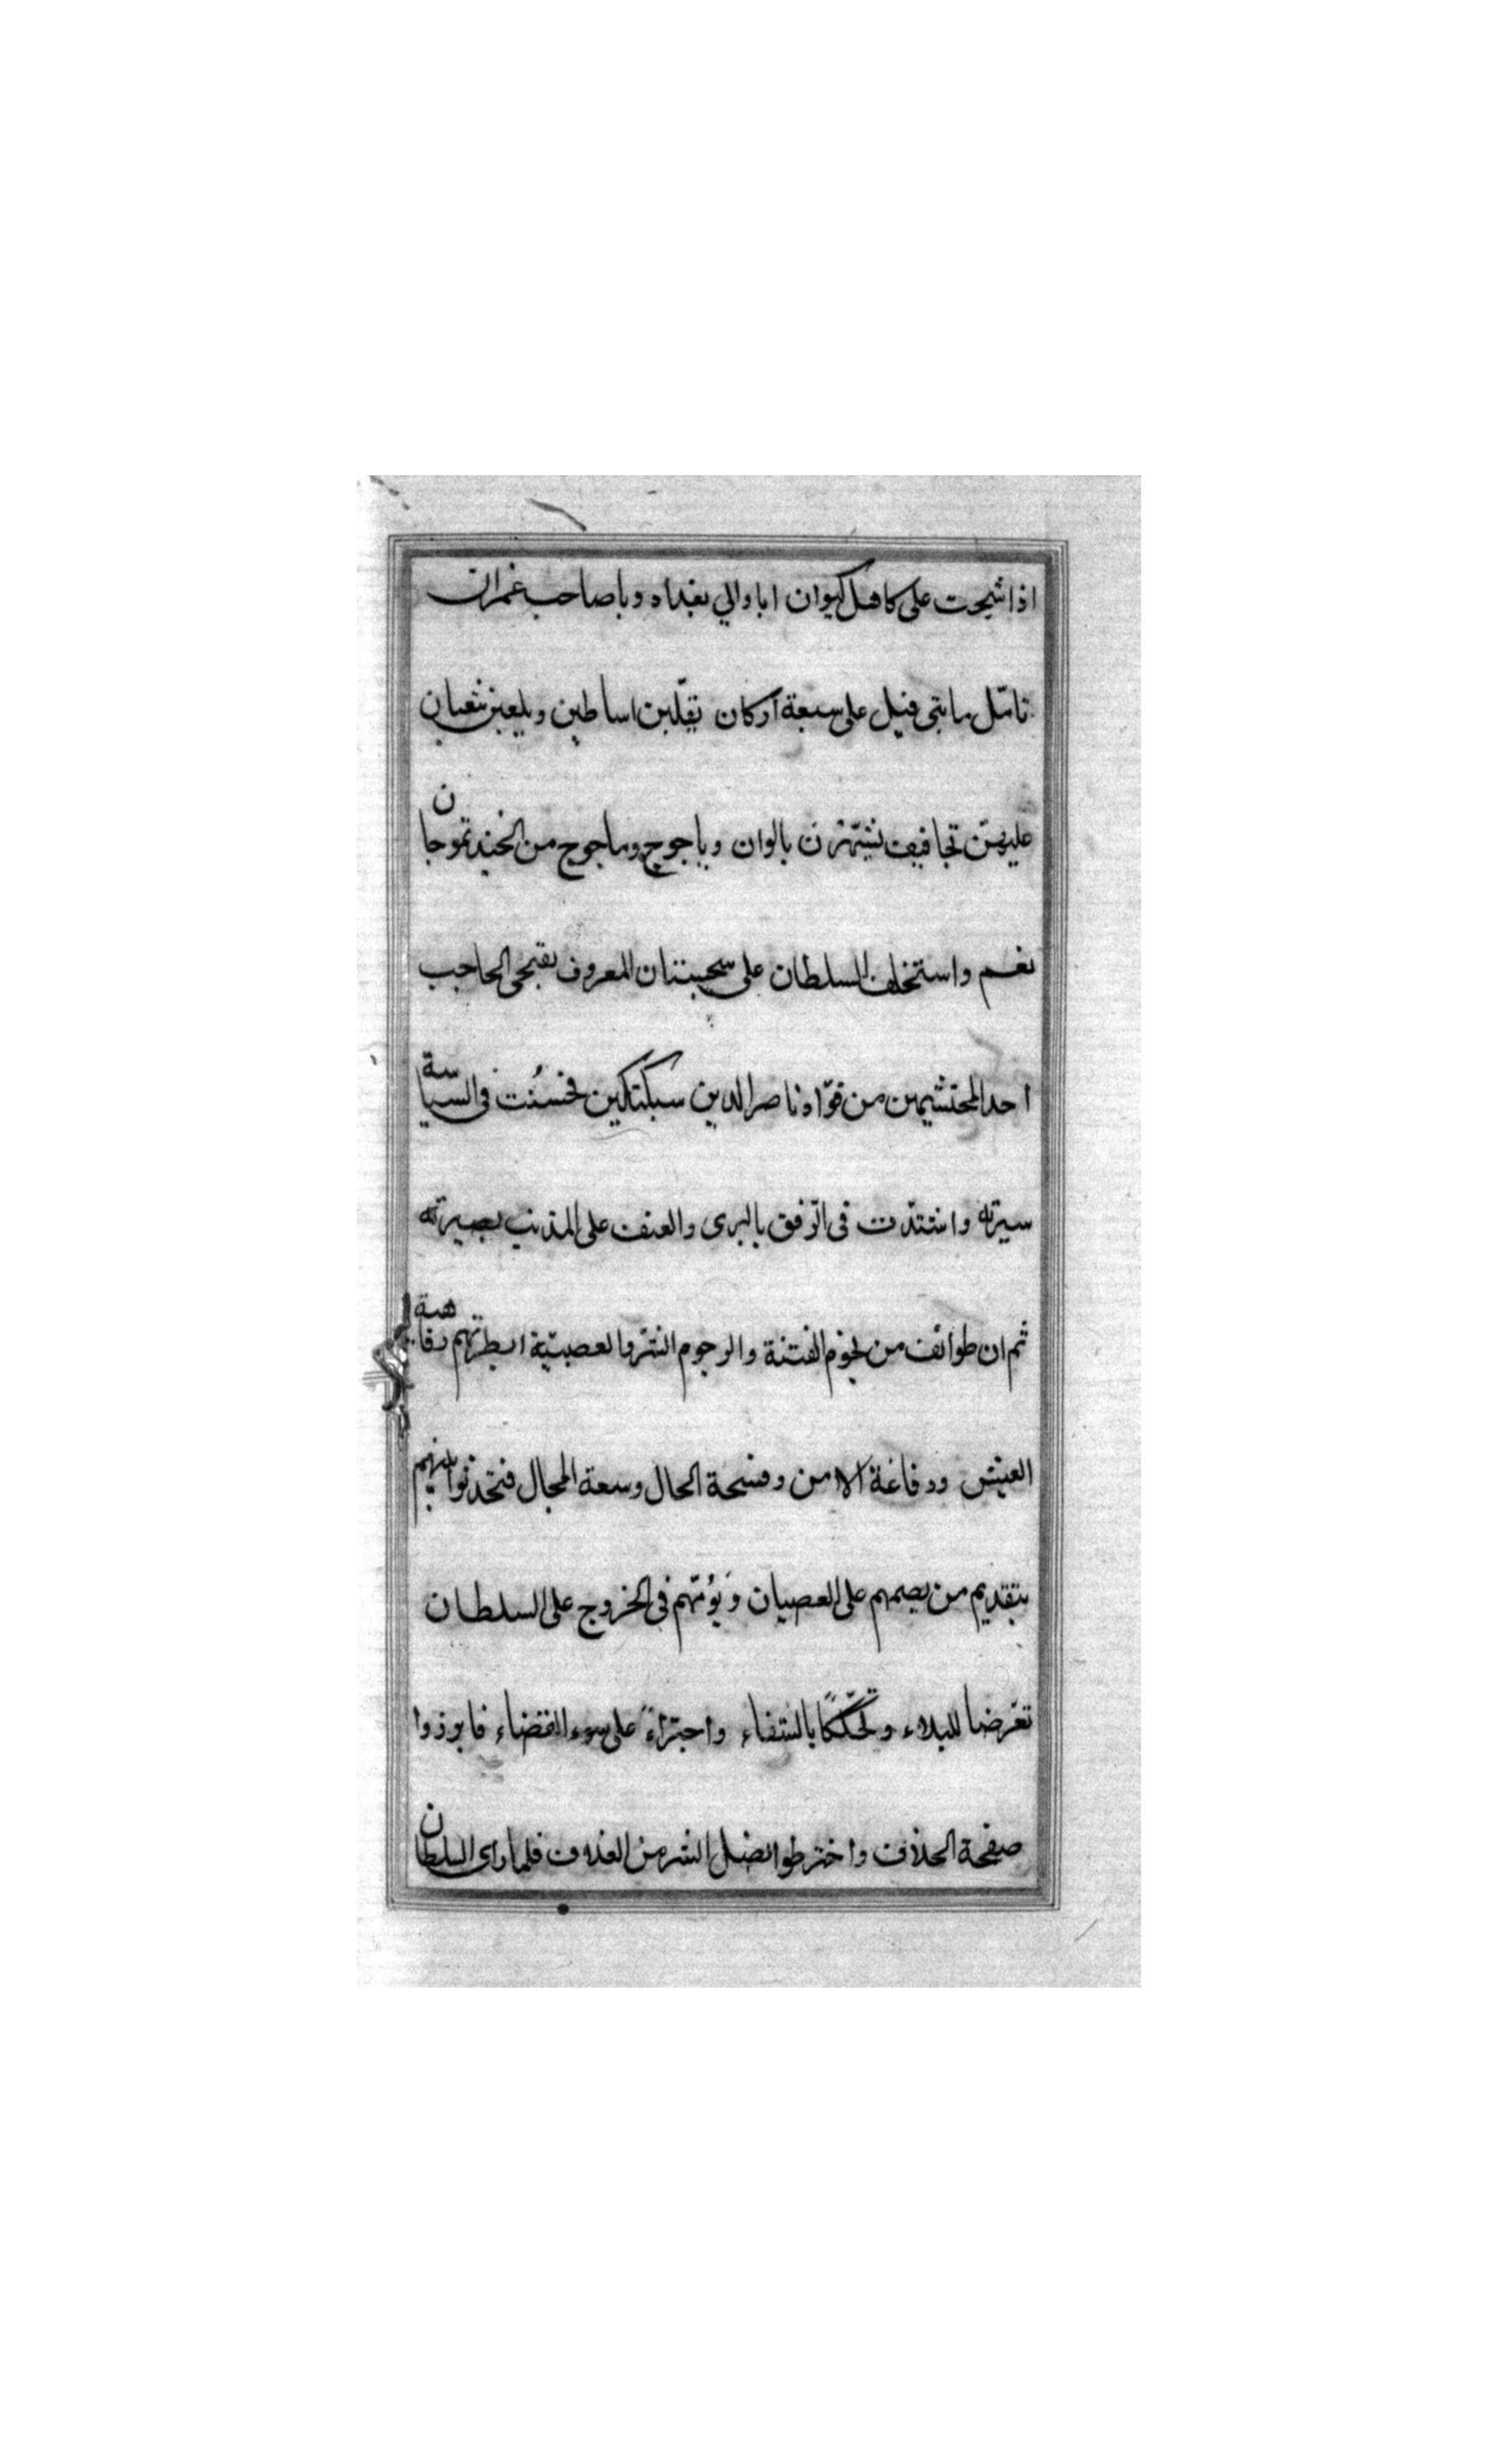 اذا شجت على كاهل كيوان ابا والي بغداد وبا صاحب غمران
تامّل مايتى فيل على سبعة اركان يقلّبن اساطين ويلعبن بثعبان
عليهنّ تجافيف تشهّرن بالوان وياجوج وماجوج من الجند تموجان
نعم واستخلف السلطان على سجستان المعروف بقنجى الحاجب
احد المحتشمين من قوّاد ناصر الدين سبكتكين فحسُنت فى السياسة
سيرته واشتدّت فى الرفق بالبرى والعنف على المذنب بصيرته
ثم ان طوائف من نجوم الفتنة والرجوم الشرّ والعصبيّة ابطرتهم رفاهية
العيش ورفاغة الامن وفسحة الحال وسعة المجال فتحدثوا بينهم
بتقديم من يضمهم على العصيان ويؤمّهم فى الخروج على السلطان
تعّرضا للبلاء وتحكّكًا بالشقاء واجتراءً على سوء القضاء فابرزوا
صفحة الخلاف واخترطوا نصل الشر من الغلاف فلما راى السلطان